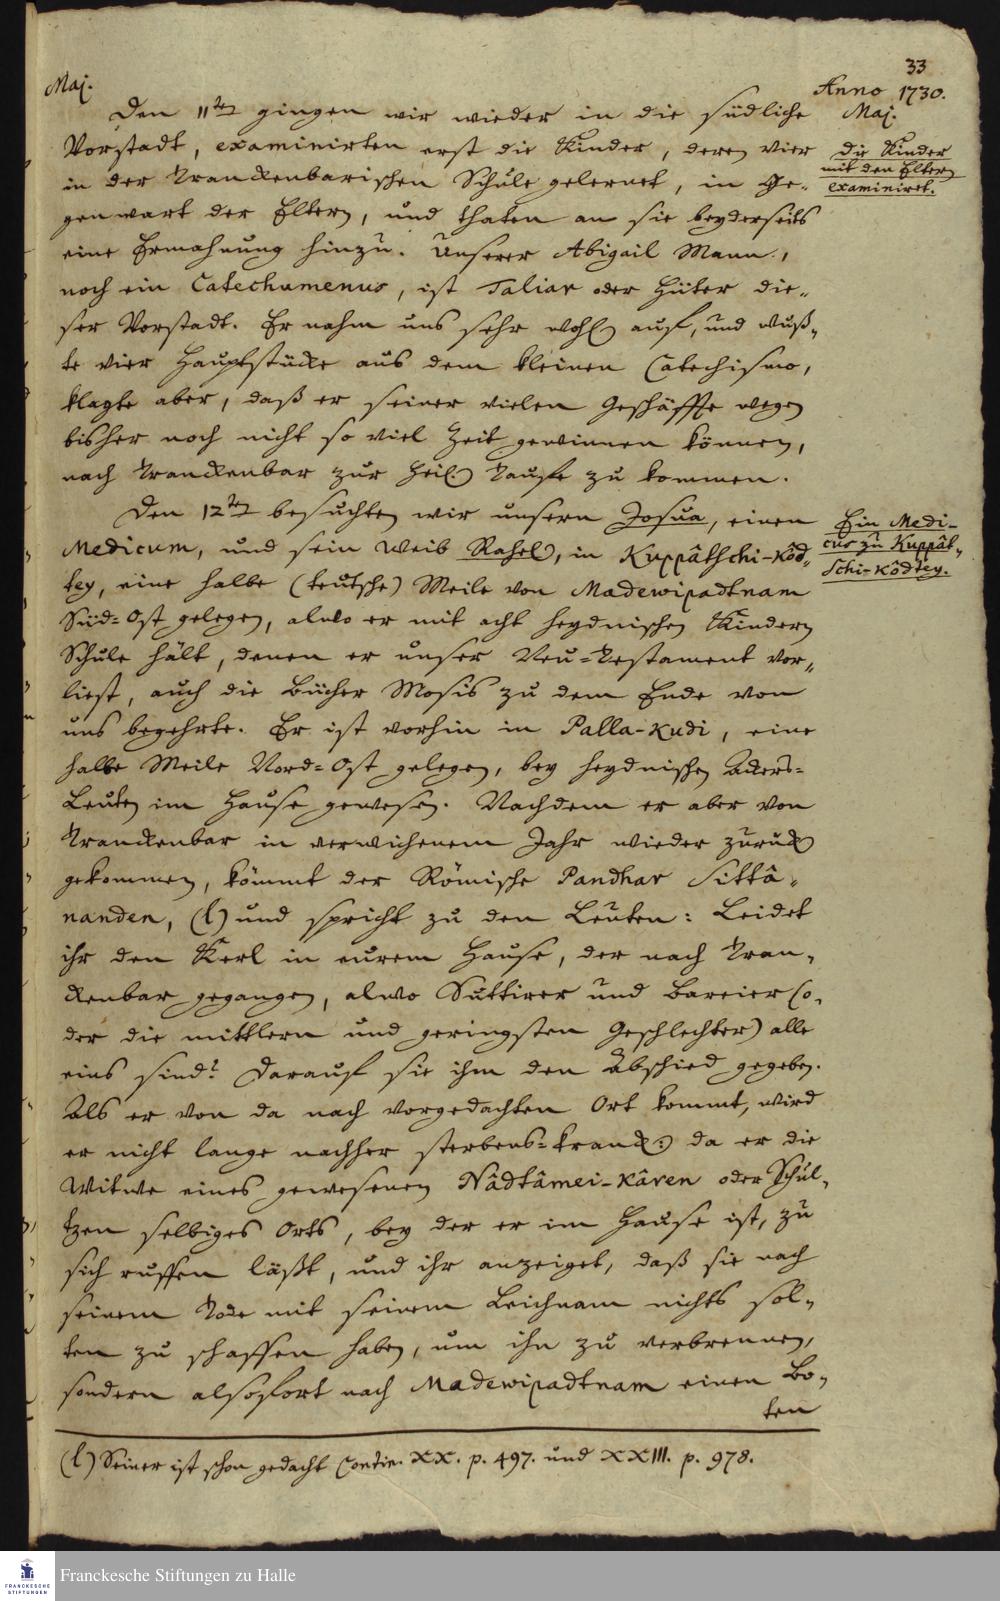 33
Maj.
Anno 1730.
Maj.
Den 11ten gingen wir wieder in die südliche
Vorstadt, examinirten erst die Kinder, deren vier
in der Tranckenbarischen Schule gelernet, in Ge-
genwart der Eltern, und thaten an sie beyderseits
eine Ermahnung hinzu. Unserer Abigail Mann,
noch ein Catechumenus, ist Taliar oder Hüter die-
ser Vorstadt. Er nahm uns sehr wohl auf, und wuß-
te vier Hauptstücke aus dem kleinen Catechismo,
klagte aber, daß er seiner vielen Geschäffte wegen
bisher noch nicht so viel Zeit gewinnen können,
nach Tranckenbar zur heil. Taufe zu kommen.
die Kinder
mit den Eltern
examiniret.
Den 12ten besuchten wir unsern Josua, einen
Medicum, und sein Weib Rahel, in Kuppâtschi-Kôd-
tey, eine halbe (teutsche) Meile von Madewipadtnam
Süd-Ost gelegen, alwo er mit acht heydnischen Kindern
Schule hält, denen er unser Neu-Testament vor-
liest, auch die Bücher Mosis zu dem Ende von
uns begehrte. Er ist vorhin in Palla-Kudi, eine
halbe Meile Nord-Ost gelegen, bey heydnischen Ackers-
Leuten im Hause gewesen. Nachdem er aber von
Tranckenbar in verwichenem Jahr wieder zurück
gekommen, kömmt der Römische Pandhar Sittâ-
nanden, (l) und spricht zu den Leuten: Leidet
ihr den Kerl in eurem Hause, der nach Tran-
ckenbar gegangen, alwo Suttirer und Bareier (o-
der die mittlern und geringsten Geschlechter) alle
eins sind? Darauf sie ihm den Abschied gegeben.
Als er von da nach vorgedachten Ort kommt, wird
er nicht lange nachher sterbens-kranck: da er die
Witwe eines gewesenen Nâdtâmei-Kâren oder Schul-
tzen selbiges Orts, bey der er im Hause ist, zu
sich ruffen läßt, und ihr anzeiget, daß sie nach
seinem Tode mit seinem Leichnam nichts sol-
ten zu schaffen haben, um ihn zu verbrennen,
sondern alsofort nach Madewipadtnam einen Bo-
ten
Ein Medi-
cus zu Kuppât-
schi-kôdtey.
(l) Seiner ist schon gedacht Contin. XX. p. 497. und XXIII. p. 978.
FRANCKESCHE
STIFTUNGEN
Franckesche Stiftungen zu Halle